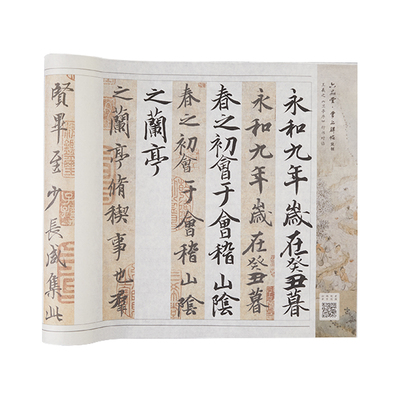 六品堂
永和九年歲在癸丑暮
永和九年歲在癸丑暮
春之初會于會稽山陰
春之初會于會稽山陰
之蘭亭
之蘭亭脩稧事也羣
賢畢至少長咸集此